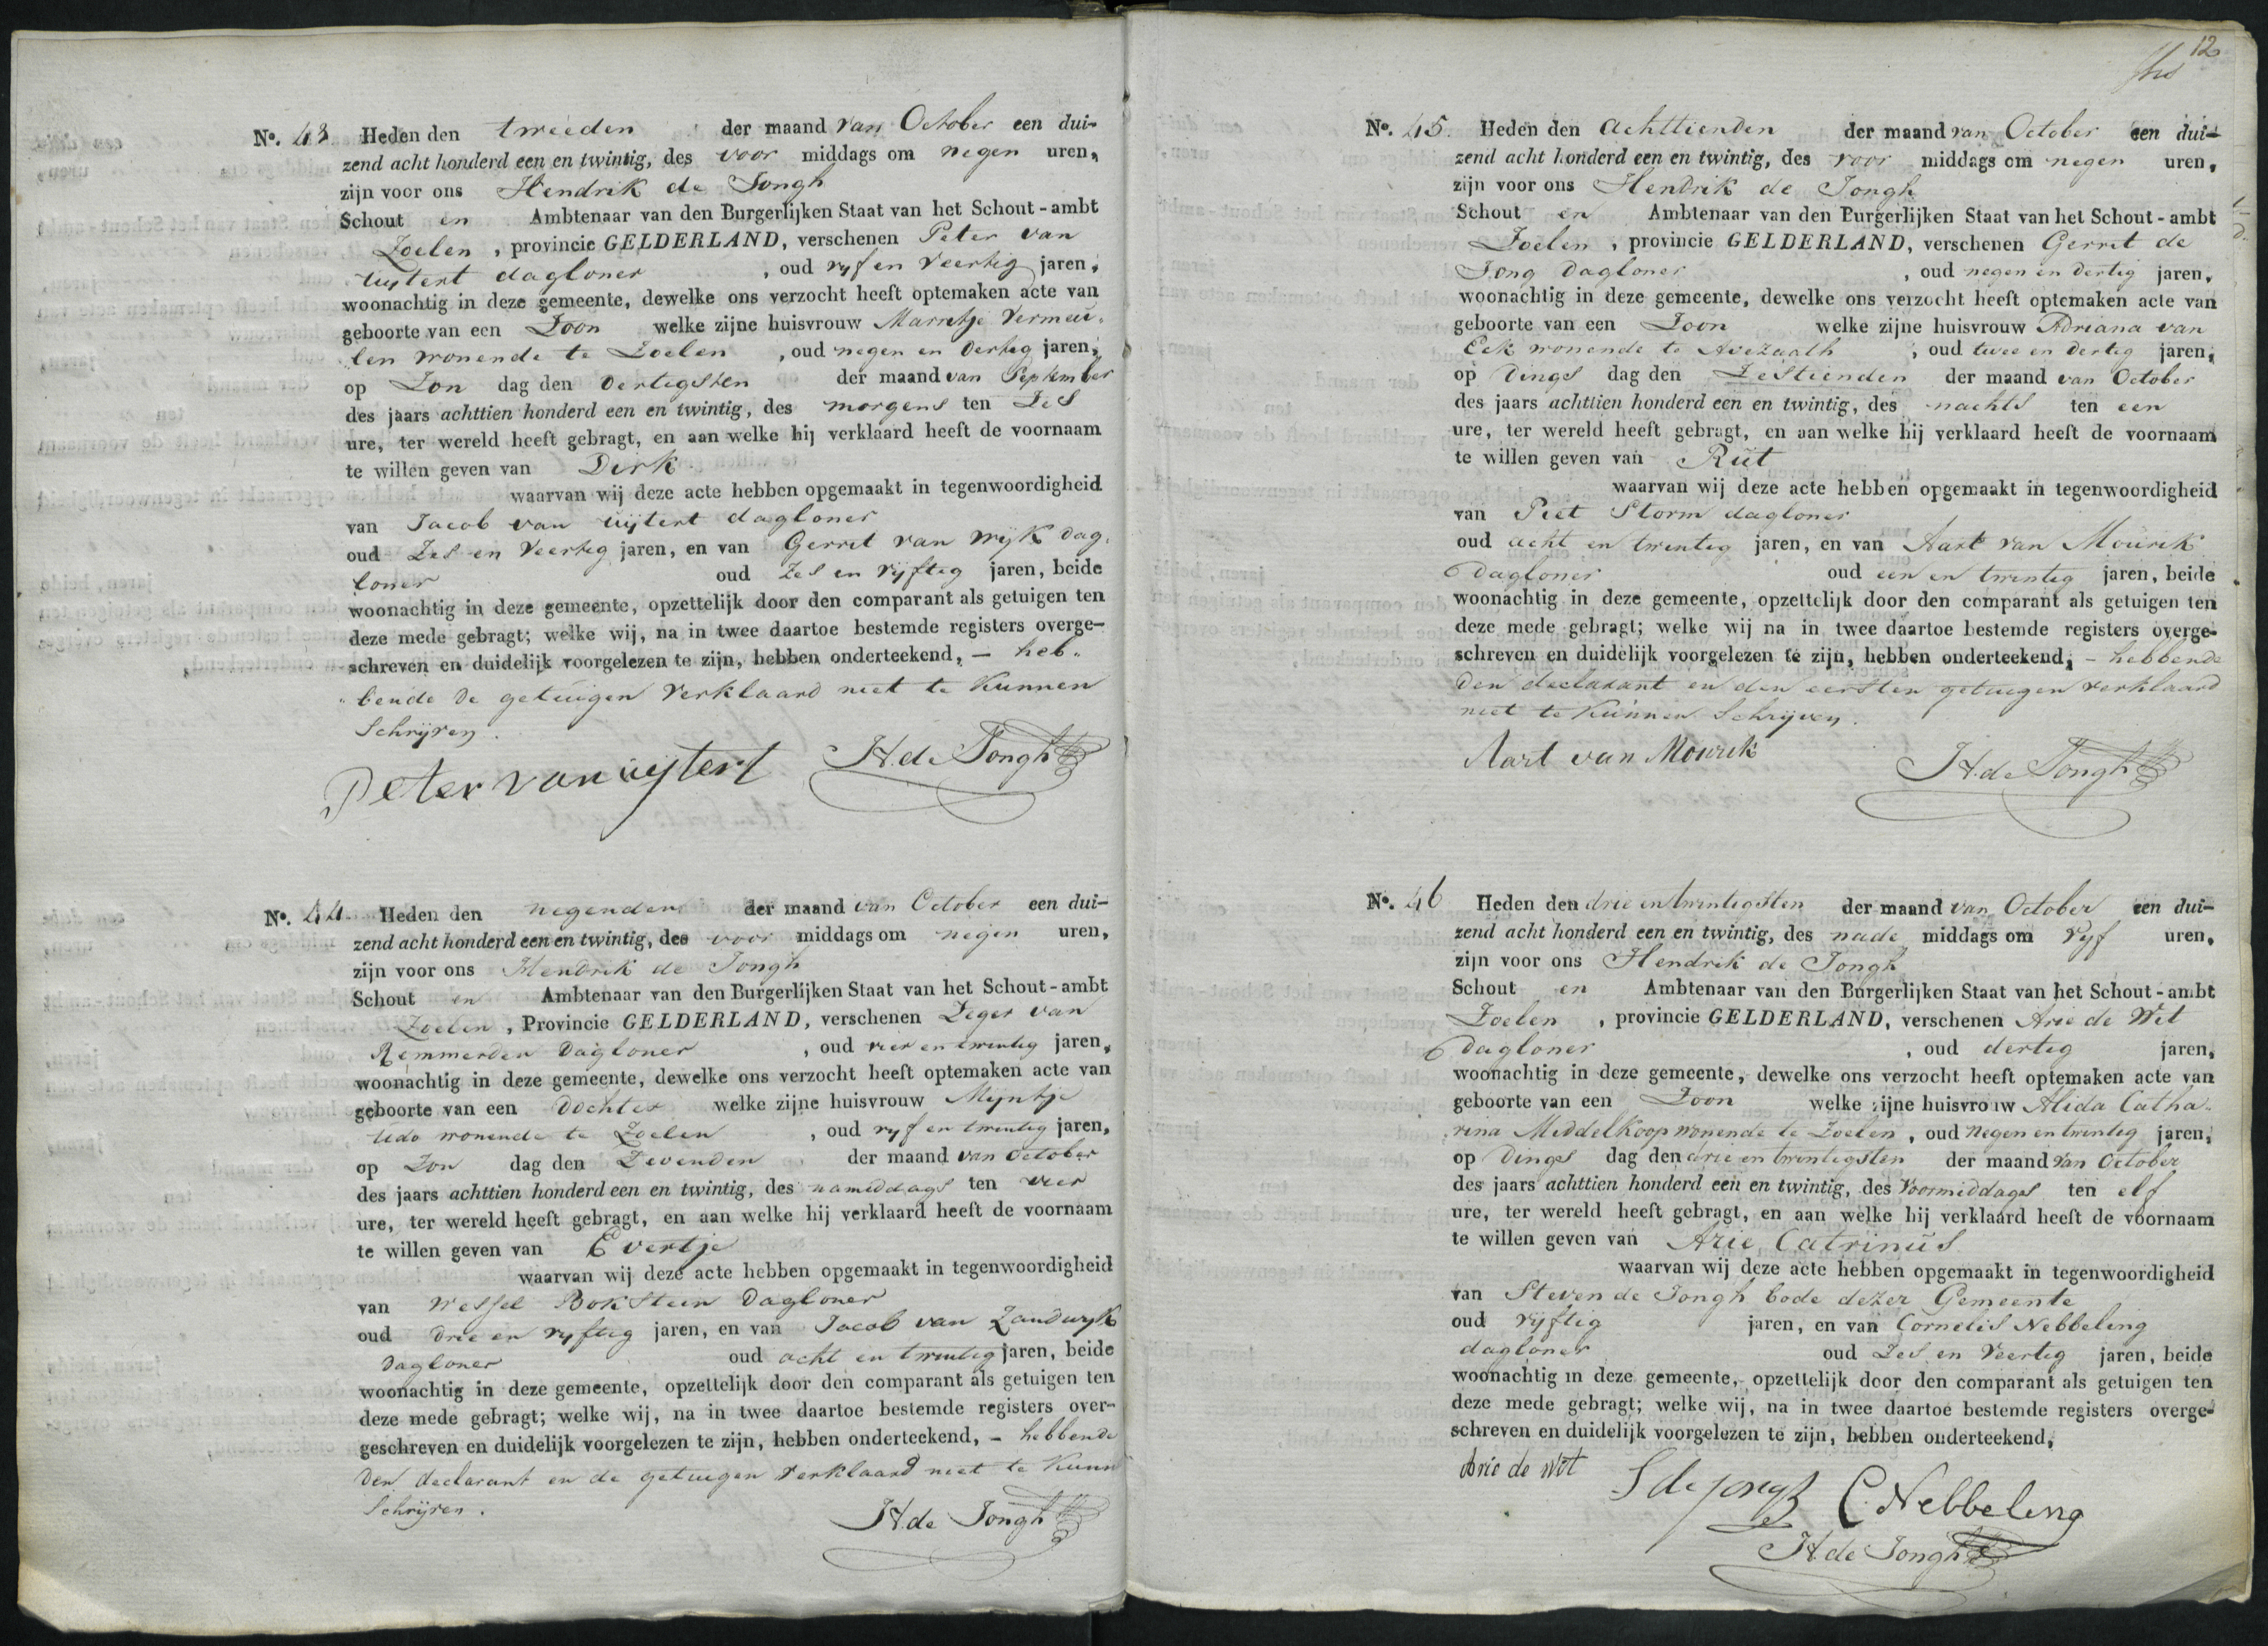 N°. 43 Heden den tweeden der maand van October een dui-
zend acht honderd een en twintig, des voor middags om negen uren,
zijn voor ons Hendrik de Jongh
Schout en Ambtenaar van den Burgerlijken Staat van het Schout-ambt
Zoelen, provincie GELDERLAND, verschenen Peter van
Uijtert dagloner, oud vyf en veertig jaren,
woonachtig in deze gemeente, dewelke ons verzocht heeft optemaken acte van
geboorte van een Zoon welke zijne huisvrouw Marretje Vermeu-
len wonende te Zoelen, oud negen en dertig jaren,
op Zon dag den dertigsten der maand van September
des jaars achttien honderd een en twintig, des morgens ten Zes
ure, ter wereld heeft gebragt, en aan welke hij verklaard heeft de voornaam
te willen geven van Dirk
waarvan wij deze acte hebben opgemaakt in tegenwoordigheid
van Jacob van Uijtert dagloner
oud Zes en Veertig jaren, en van Gerret van Wijk dag-
loner oud Zes en Vijftig jaren, beide
woonachtig in deze gemeente, opzettelijk door den comparant als getuigen ten
deze mede gebragt; welke wij, na in twee daartoe bestemde registers overge-
schreven en duidelijk voorgelezen te zijn, hebben onderteekend, – heb-
bende de getuigen verklaard niet te kunnen
Schrijven.
Peter van uijtert H. de Jongh
N°. 44 Heden den negenden der maand van October een dui-
zend acht honderd een en twintig, des voor middags om negen uren,
zijn voor ons Hendrik de Jongh
Schout en Ambtenaar van den Burgerlijken Staat van het Schout-ambt
Zoelen, Provincie GELDERLAND, verschenen Zeger van
Remmerden Dagloner, oud vier en twintig jaren,
woonachtig in deze gemeente, dewelke ons verzocht heeft optemaken acte van
geboorte van een Dochter welke zijne huisvrouw Mijntje
Udo wonende te Zoelen, oud vyf en twintig jaren,
op Zon dag den Zevenden der maand van October
des jaars achttien honderd een en twintig, des namiddags ten vier
ure, ter wereld heeft gebragt, en aan welke hij verklaard heeft de voornaam
te willen geven van Evertje
waarvan wij deze acte hebben opgemaakt in tegenwoordigheid
van Wessel Bokstein Dagloner
oud drie en vyftig jaren, en van Jacob van Zandwyk
Dagloner oud acht en twintig jaren, beide
woonachtig in deze gemeente, opzettelijk door den comparant als getuigen ten
deze mede gebragt; welke wij, na in twee daartoe bestemde registers over-
geschreven en duidelijk voorgelezen te zijn, hebben onderteekend, – hebbende
den declarant en de getuigen verklaard niet te kunn
Schrijven.
H. de Jongh
12
N°. 45. Heden den Achttienden der maand van October een dui-
zend acht honderd een en twintig, des voor middags om negen uren,
zijn voor ons Hendrik de Jongh
Schout en Ambtenaar van den Burgerlijken Staat van het Schout-ambt
Zoelen, provincie GELDERLAND, verschenen Gerret de
Jong Dagloner, oud negen en dertig jaren,
woonachtig in deze gemeente, dewelke ons verzocht heeft optemaken acte van
geboorte van een Zoon welke zijne huisvrouw Adriana van
Eck wonende te Avezaath, oud twee en dertig jaren,
op Dings dag den Zestienden der maand van October
des jaars achttien honderd een en twintig, des nachts ten een
ure, ter wereld heeft gebragt, en aan welke hij verklaard heeft de voornaam
te willen geven van Rut
waarvan wij deze acte hebben opgemaakt in tegenwoordigheid
van Piet Storm dagloner
oud acht en twintig jaren, en van Aart van Mourik
Dagloner oud een en twintig jaren, beide
woonachtig in deze gemeente, opzettelijk door den comparant als getuigen ten
deze mede gebragt; welke wij na in twee daartoe bestemde registers overge-
schreven en duidelijk voorgelezen te zijn, hebben onderteekend, – hebbende
den declarant en den eersten getuigen verklaard
niet te kunnen Schrijven.
Aart van Mourik H. de Jongh
N°. 46 Heden den drie en twintigsten der maand van October een dui-
zend acht honderd een en twintig, des nade middags om Vyf uren,
zijn voor ons Hendrik de Jongh
Schout en Ambtenaar van den Burgerlijken Staat van het Schout-ambt
Zoelen, provincie GELDERLAND, verschenen Arie de Wit
dagloner, oud dertig jaren,
woonachtig in deze gemeente, dewelke ons verzocht heeft optemaken acte van
geboorte van een Zoon welke zijne huisvrouw Alida Catha-
rina Middelkoop wonende te Zoelen, oud Negen en twintig jaren,
op Dings dag den drie en twintigsten der maand van October
des jaars achttien honderd een en twintig, des Voormiddags ten elf
ure, ter wereld heeft gebragt, en aan welke hij verklaard heeft de voornaam
te willen geven van Arie Catrinus
waarvan wij deze acte hebben opgemaakt in tegenwoordigheid
van Steven de Jongh bode dezer Gemeente
oud vyftig jaren, en van Cornelis Nebbeling
dagloner oud Zes en Veertig jaren, beide
woonachtig in deze gemeente, opzettelijk door den comparant als getuigen ten
deze mede gebragt; welke wij, na in twee daartoe bestemde registers overge-
schreven en duidelijk voorgelezen te zijn, hebben onderteekend,
Arie de Wit S de Jongh C Nebbeling
H. de Jongh